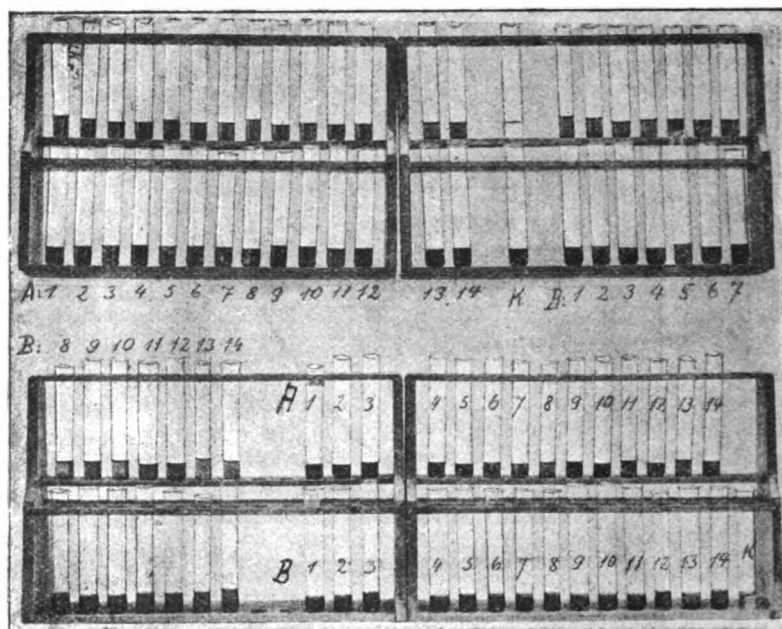 A: 1 2 3 4 5 6 7 8 9 10 11 12 13. 14 K B: 1 2 3 4 5 6 7
B: 8 9 10 11 12 13 14
A 1 2 3 4 5 6 7 8 9 10 11 12 13 14
B 1 2 3 4 5 6 7 8 9 10 11 12 13 14 K